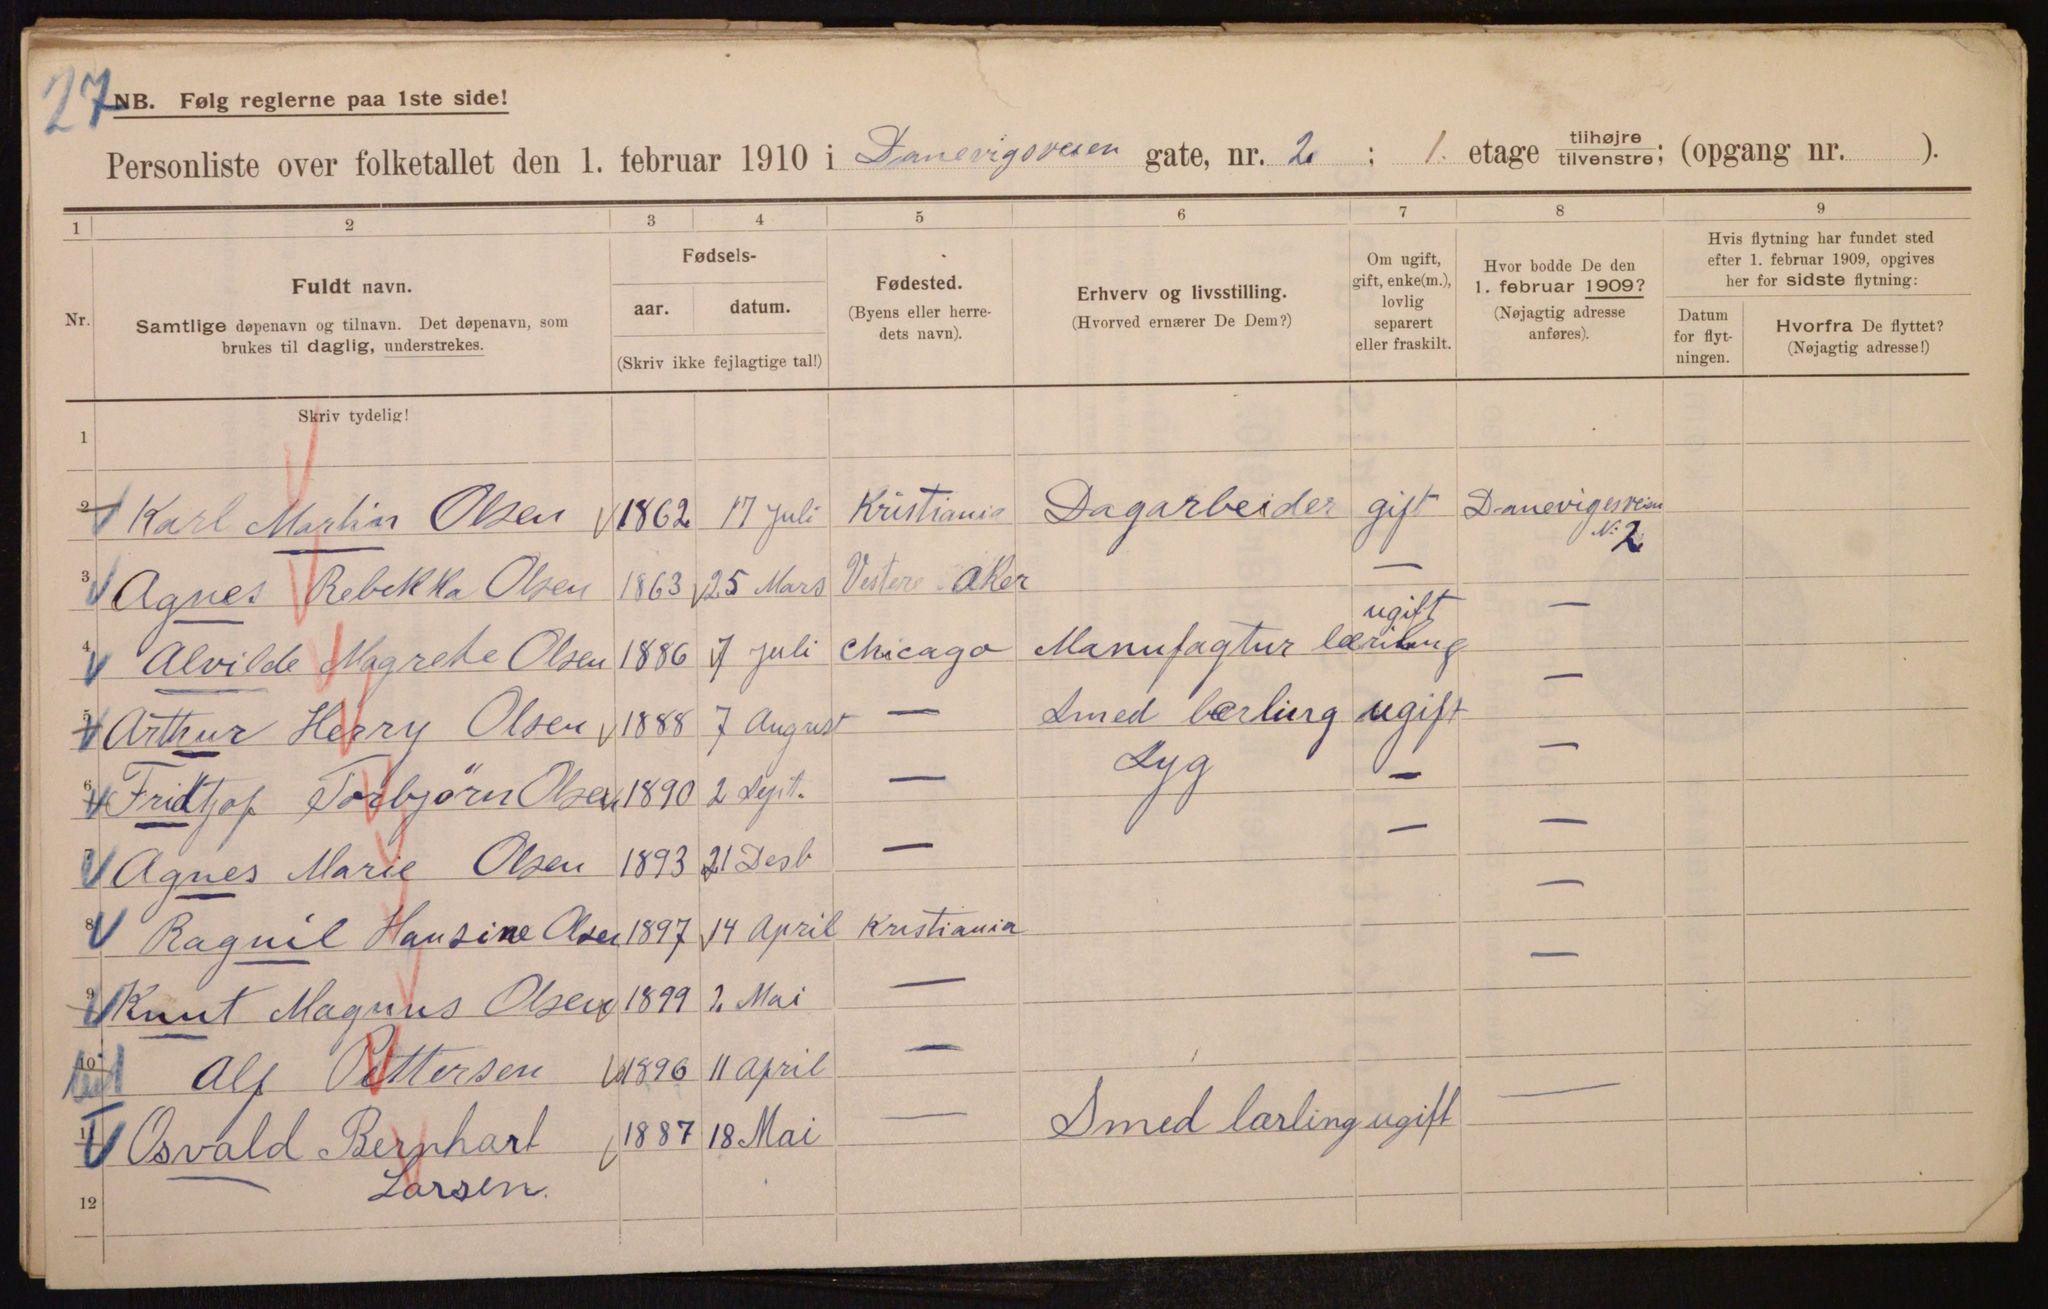 27
NB. Følg reglerne paa 1ste side!
Personliste over folketallet den 1. februar 1910 i Danevigsveien gate, nr. 2 ; 1. etage tilhøjre tilvenstre; (opgang nr. ).
1 2 3 4 5 6 7 8 9
Nr.
Fuldt navn.
Samtlige døpenavn og tilnavn. Det døpenavn, som
brukes til daglig, understrekes.
Fødsels-
aar. datum.
(Skriv ikke fejlagtige tal!)
Fødested.
(Byens eller herre-
dets navn).
Erhverv og livsstilling.
(Hvorved ernærer De Dem?)
Om ugift,
gift, enke(m.),
lovlig
separert
eller fraskilt.
Hvor bodde De den
1. februar 1909?
(Nøjagtig adresse
anføres).
Hvis flytning har fundet sted
efter 1. februar 1909, opgives
her for sidste flytning:
Datum
for flyt-
ningen.
Hvorfra De flyttet?
(Nøjagtig adresse!)
Skriv tydelig!
1
2 Karl Martin Olsen 1862 17 Juli Kristiania Dagarbeider gift Danevigesveien
N: 2
3 Agnes Rebekka Olsen 1863 25 Mars Vestere Aker —
4 Alvilde Magrete Olsen 1886 7 Juli Chicago Manufagtur lærling ugift —
5 Arthur Henry Olsen 1888 7 August — Smed lærling ugift —
6 Fridtjof Torbjørn Olsen 1890 2 Sept. — Syg — —
7 Agnes Marie Olsen 1893 21 Desb — — —
8 Ragnil Hansine Olsen 1897 14 April Kristiania —
9 Knut Magnus Olsen 1899 2 Mai — —
10 Alf Pettersen 1896 11 April —
11 Osvald Bernhart 1887 18 Mai — Smed lærling ugift —
Larsen.
12